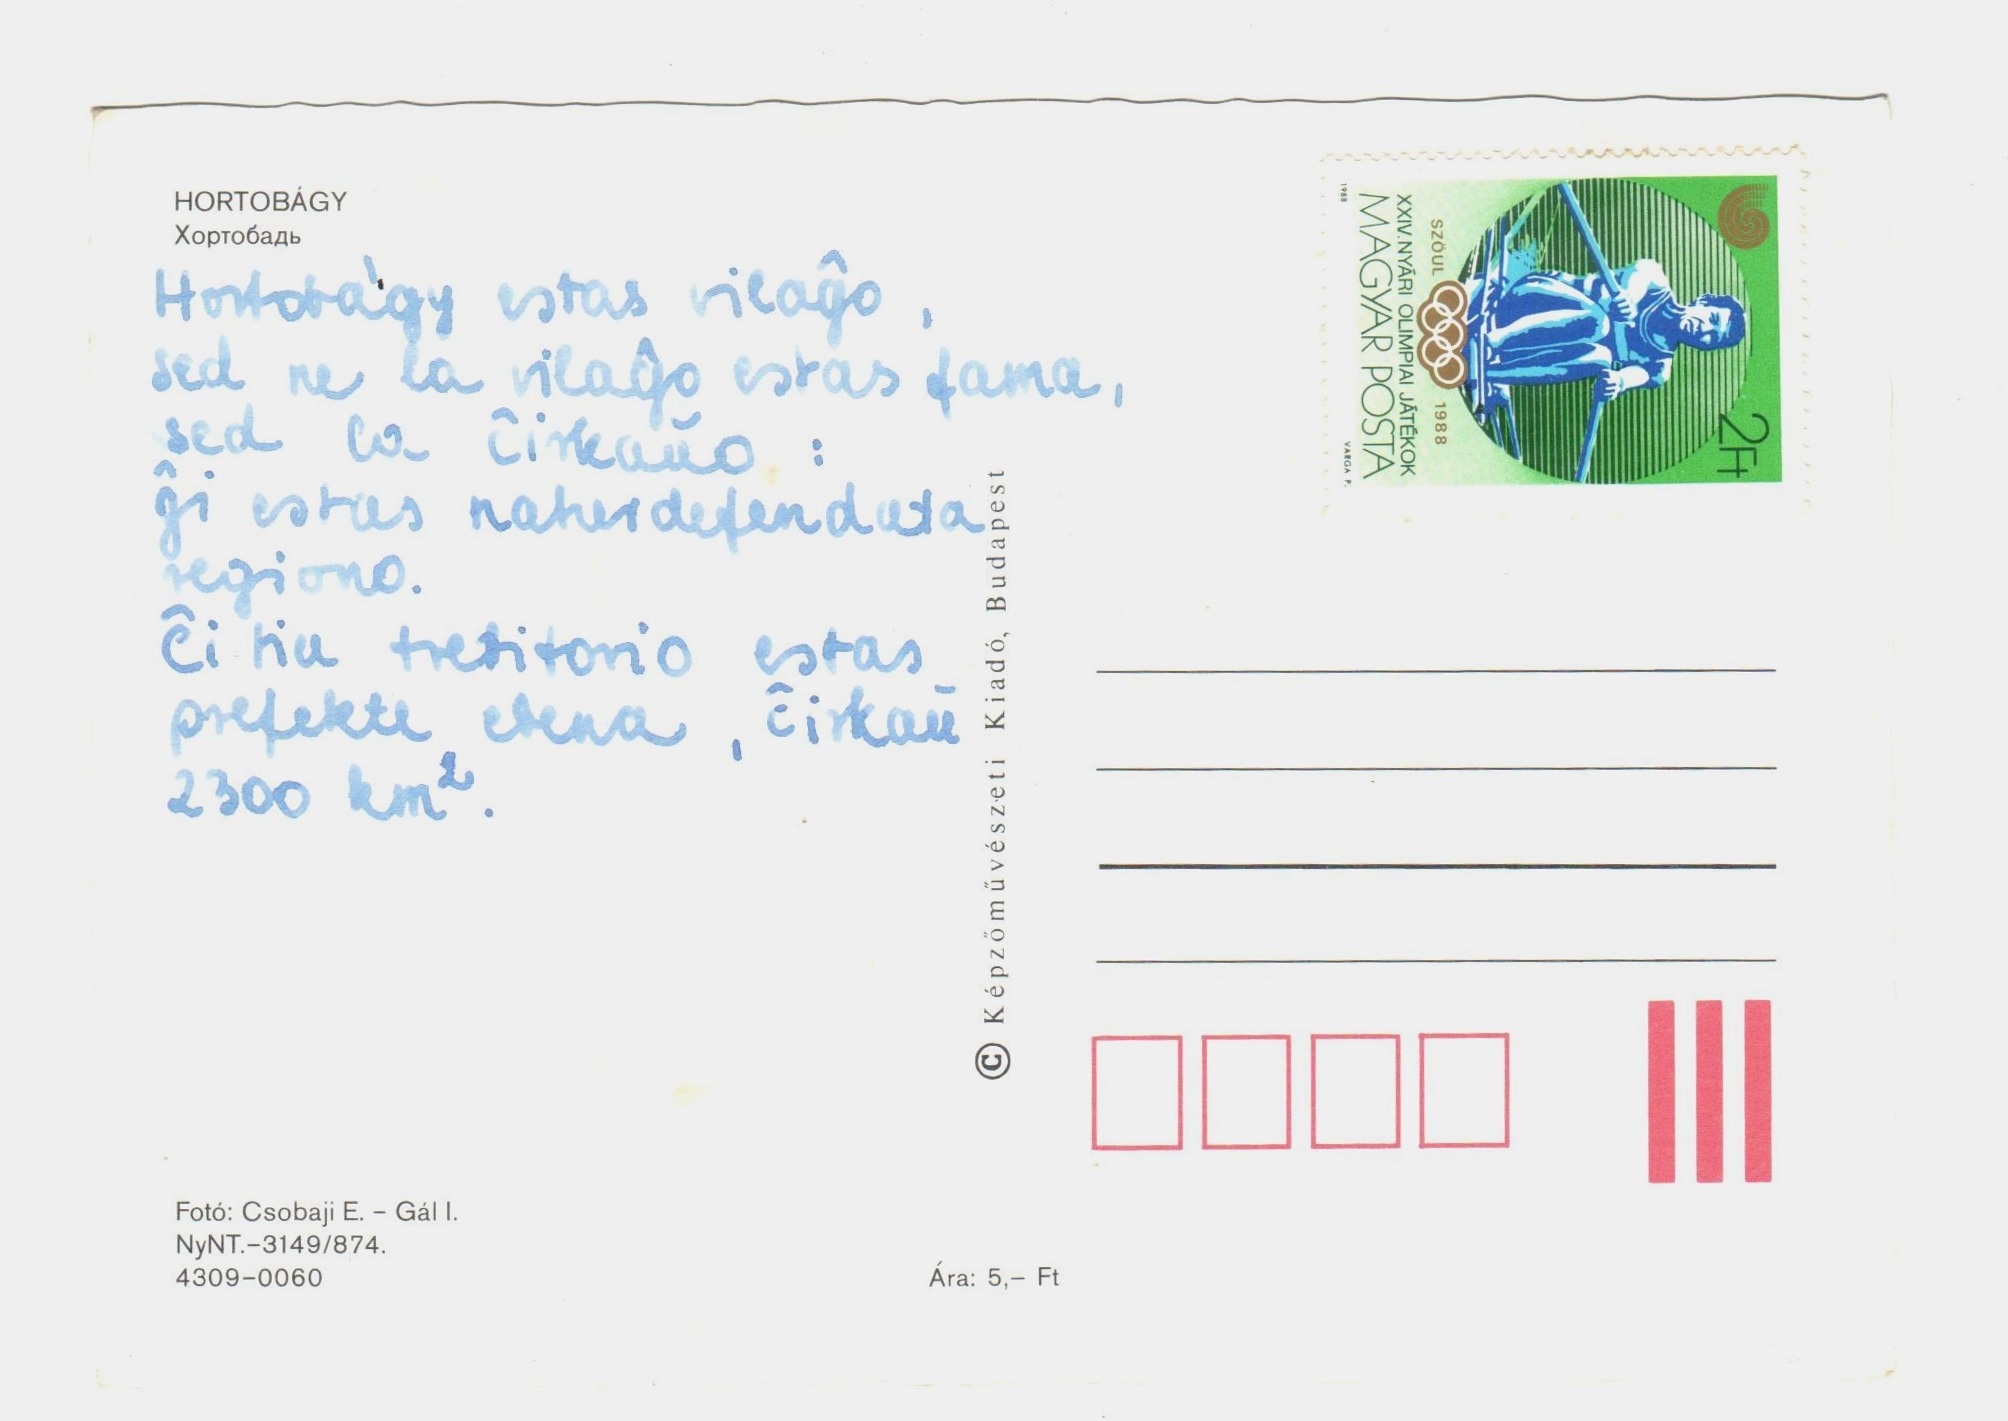 HORTOBÁGY
Хортобадь
Hortobágy estas vilaĝo,
sed ne la vilaĝo estas fama,
sed la ĉirkaŭo:
ĝi estas naturdefendata
regiono.
Ĉi tiu treritorio estas
prefekte ebena, ĉirkaŭ
2300 km².
Fotó: Csobaji E. – Gál I.
NyNT.–3149/874.
4309–0060
Ára: 5,– Ft
© Képzőművészeti Kiadó, Budapest
1988
MAGYAR POSTA
XXIV. NYÁRI OLIMPIAI JÁTÉKOK
SZÖUL 1988
2Ft
VARGA P.